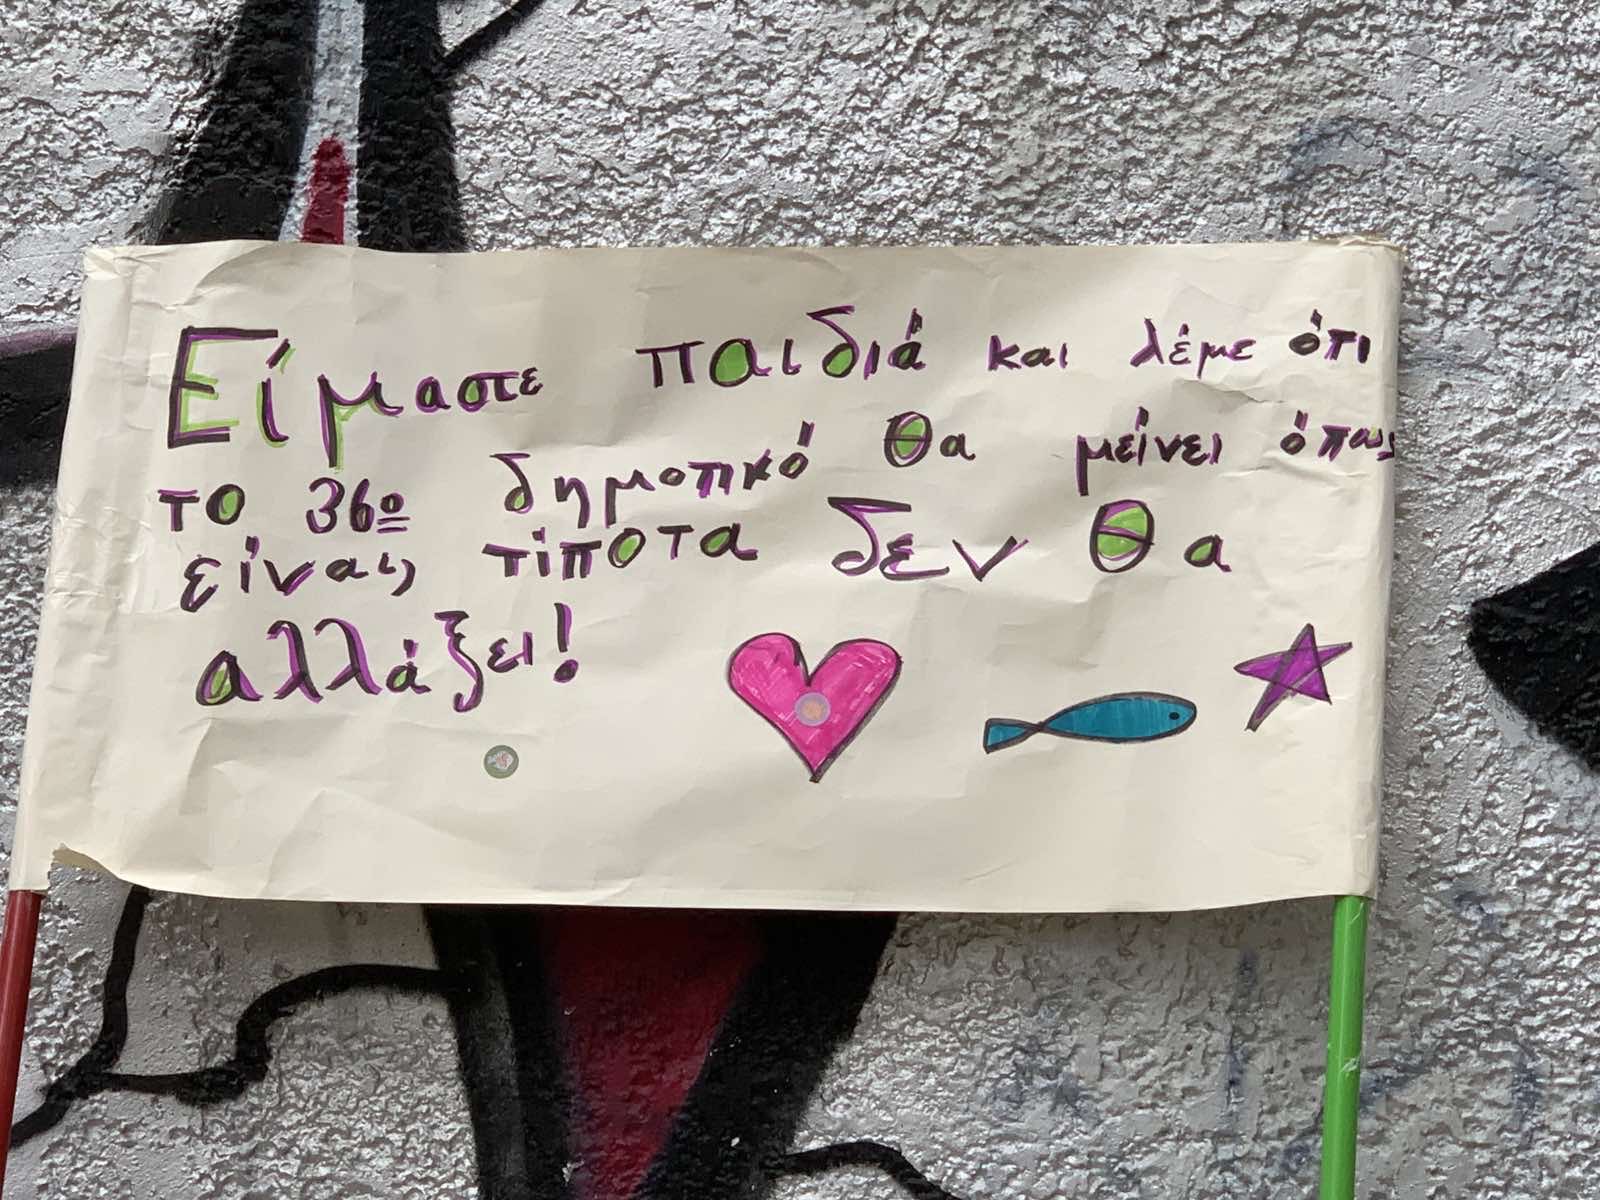 Είμαστε παιδιά και λέμε ότι
το 36ο δημοτικό θα μείνει όπως
είναι, τίποτα δεν θα
αλλάξει!